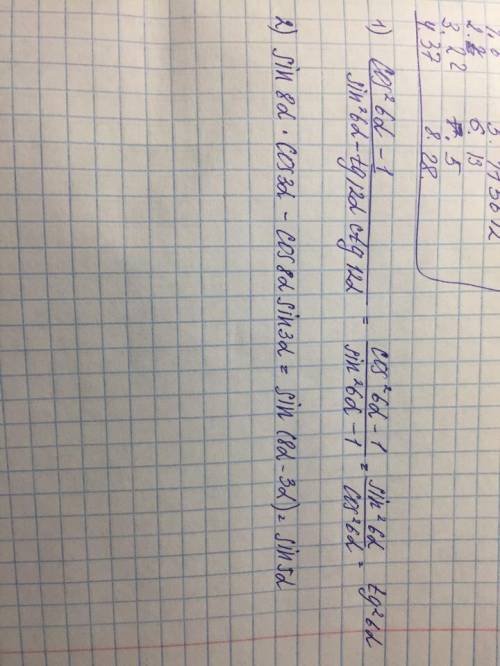 3. 22
4 37
6. 13
7. 5
8. 28
1) cos²6α - 1 / sin²6α - tg 12α ctg 12α = cos²6α - 1 / sin²6α - 1 = sin²6α / cos²6α = tg²6α
2) sin 8α · cos3α - cos 8α sin3α = sin (8α - 3α) = sin 5α